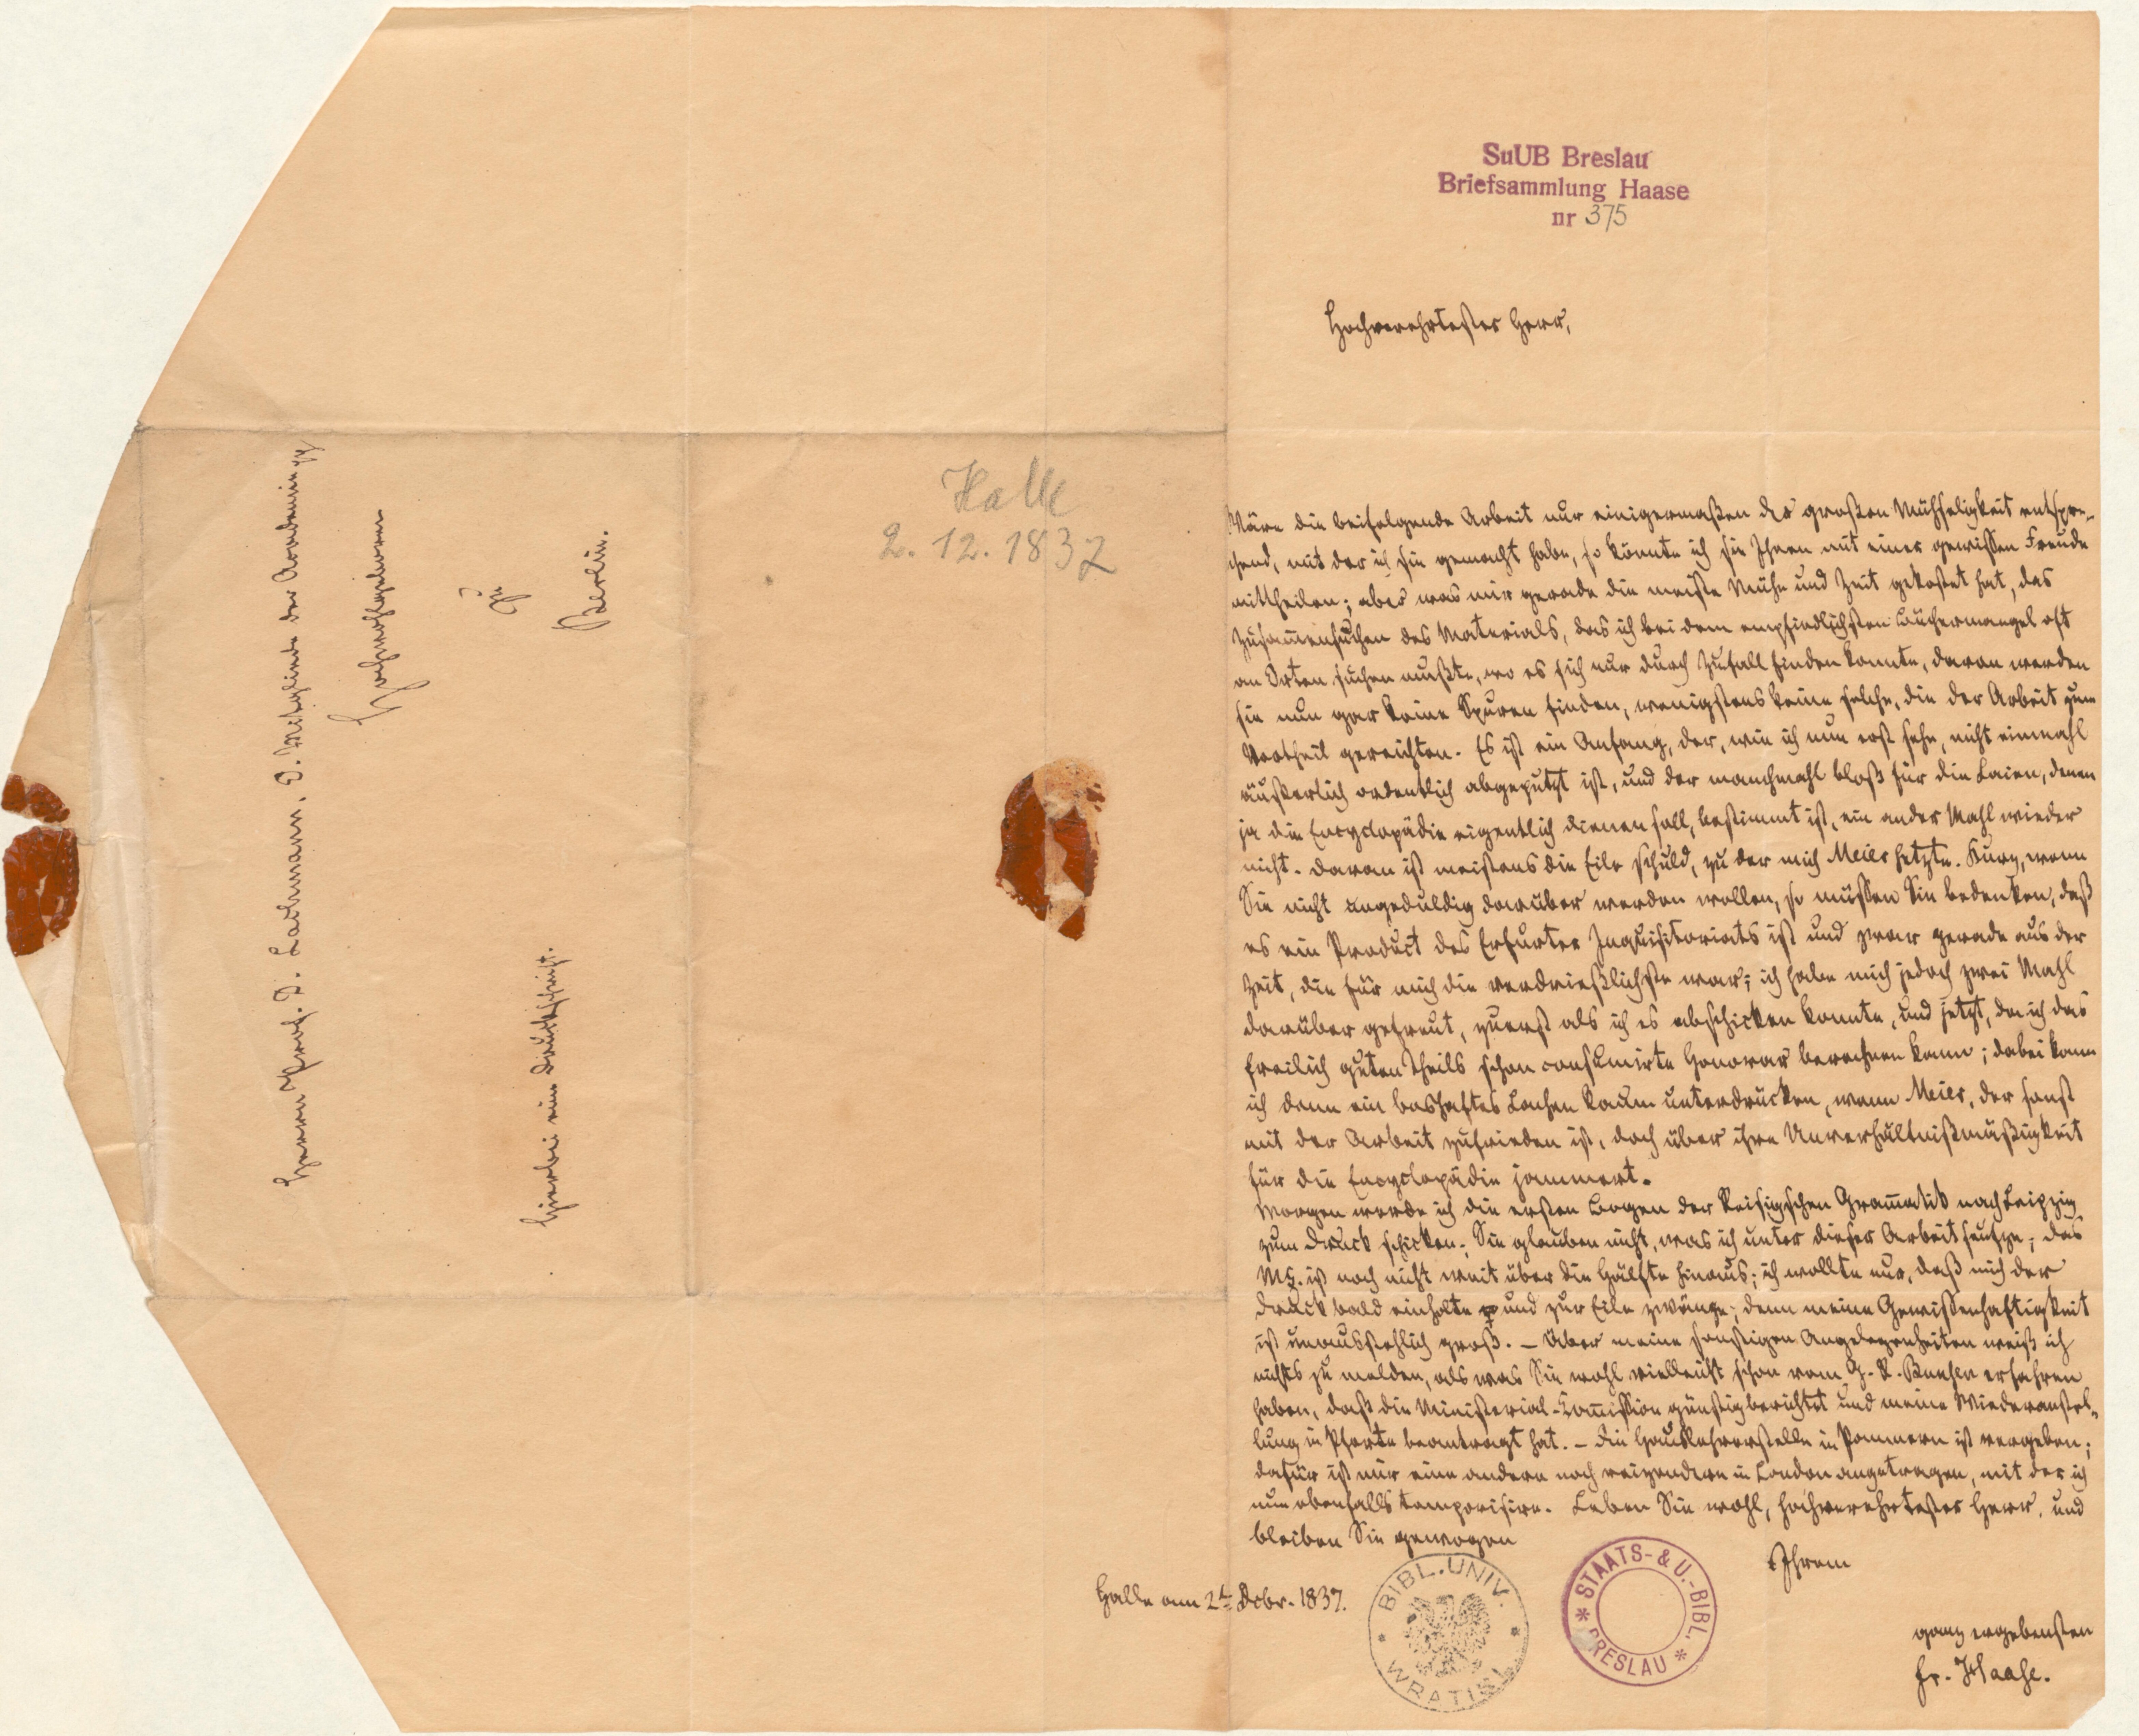 SuUB Breslau
Briefsammlung Haase
nr 375
Hochverehrtester Herr,
Wäre die beifolgende Arbeit nur einigermaßen der großen Mühseligkeit entspre-
chend, mit der ich sie gemacht habe, so könnte ich sie Ihnen mit einer gewissen Freude
mittheilen; aber was mir gerade die meiste Mühe und Zeit gekostet hat, das
Zusam̄ensuchen des Materials, das ich bei dem empfindlichsten Büchermangel oft
an Orten suchen mußte, wo es sich nur durch Zufall finden konnte, davon werden
sie nun gar keine Spuren finden, wenigstens keine solche, die der Arbeit zum
Vortheil gereichten. Es ist ein Anfang, der, wie ich nun erst sehe, nicht einmahl
äußerlich ordentlich abgeputzt ist, und der manchmahl bloß für die Laien, denen
ja die Encyclopädie eigentlich dienen soll, bestimmt ist, ein ander Mahl wieder
nicht. Daran ist meistens die Eile schuld, zu der mich Meier hetzte. Kurz, wenn
Sie nicht ungeduldig darüber werden wollen, so müssen Sie bedenken, daß
es ein Product des Erfurter Inquisitoriats ist und zwar gerade aus der
Zeit, die für mich die verdrießlichste war; ich habe mich jedoch zwei Mahl
darüber gefreut, zuerst als ich es abschicken konnte, und jetzt, da ich das
freilich guten Theils schon consumirte Honorar berechnen kann; dabei kann
ich denn ein boshaftes Lachen kaum unterdrücken, wenn Meier, der sonst
mit der Arbeit zufrieden ist, doch über ihre Unverhältnißmäßigkeit
für die Encyclopädie jammert.
Morgen werde ich die ersten Bogen der Reisigschen Gram̄atik nach Leipzig
zum Druck schicken; Sie glauben nicht, was ich unter dieser Arbeit seufze; das
MS. ist noch nicht weit über die Hälfte hinaus; ich wollte nur, daß mich der
Druck bald einholte und zur Eile zwänge; denn meine Gewissenhaftigkeit
ist unausstehlich groß. – Über meine sonstigen Angelegenheiten weiß ich
nichts zu melden, als was Sie wohl vielleicht schon vom G. R. erfahren
haben, daß die Ministerial-Com̄ission günstig berichtet und meine Wiederanstel-
lung in Pforte beantragt hat. – Die Hauslehrerstelle in Pommern ist vergeben;
dafür ist mir eine andere noch reizendere in London angetragen, mit der ich
nun ebenfalls temporisire. Leben Sie wohl, hochverehrtester Herr, und
bleiben Sie gewogen
Ihrem
ganz ergebensten
Fr. Haase.
Halle am 2t Dcbr. 1837.
BIBL. UNIV. WRATISL.
STAATS- & U.-BIBL. BRESLAU
Halle
2. 12. 1837
Herrn Prof. D. Lachmann, O. Mitgliede der Academie
Hochwohlgeboren
zu
Berlin.
Hierbei eine Druckschrift.